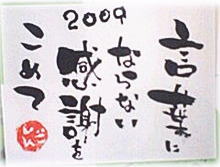 言葉に
ならない
感謝を
こめて
2009